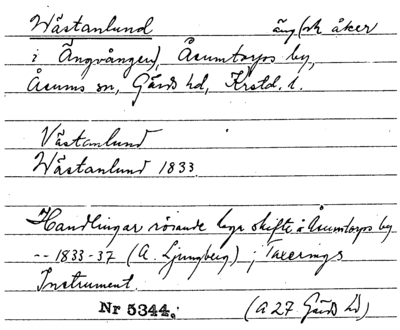 Wästanlund äng (ch åker
i Ängvången), Åsumtorps by,
Åsums sn, Gärds hd, Krstd. l.
Västanlund
Wästanlund 1833
Handlingar rörande laga skifte å Åsumtorps by
-- 1833-37 (A. Ljungberg); Taxerings
Instrument.
Nr 5344. (A 27 Gärds hd)